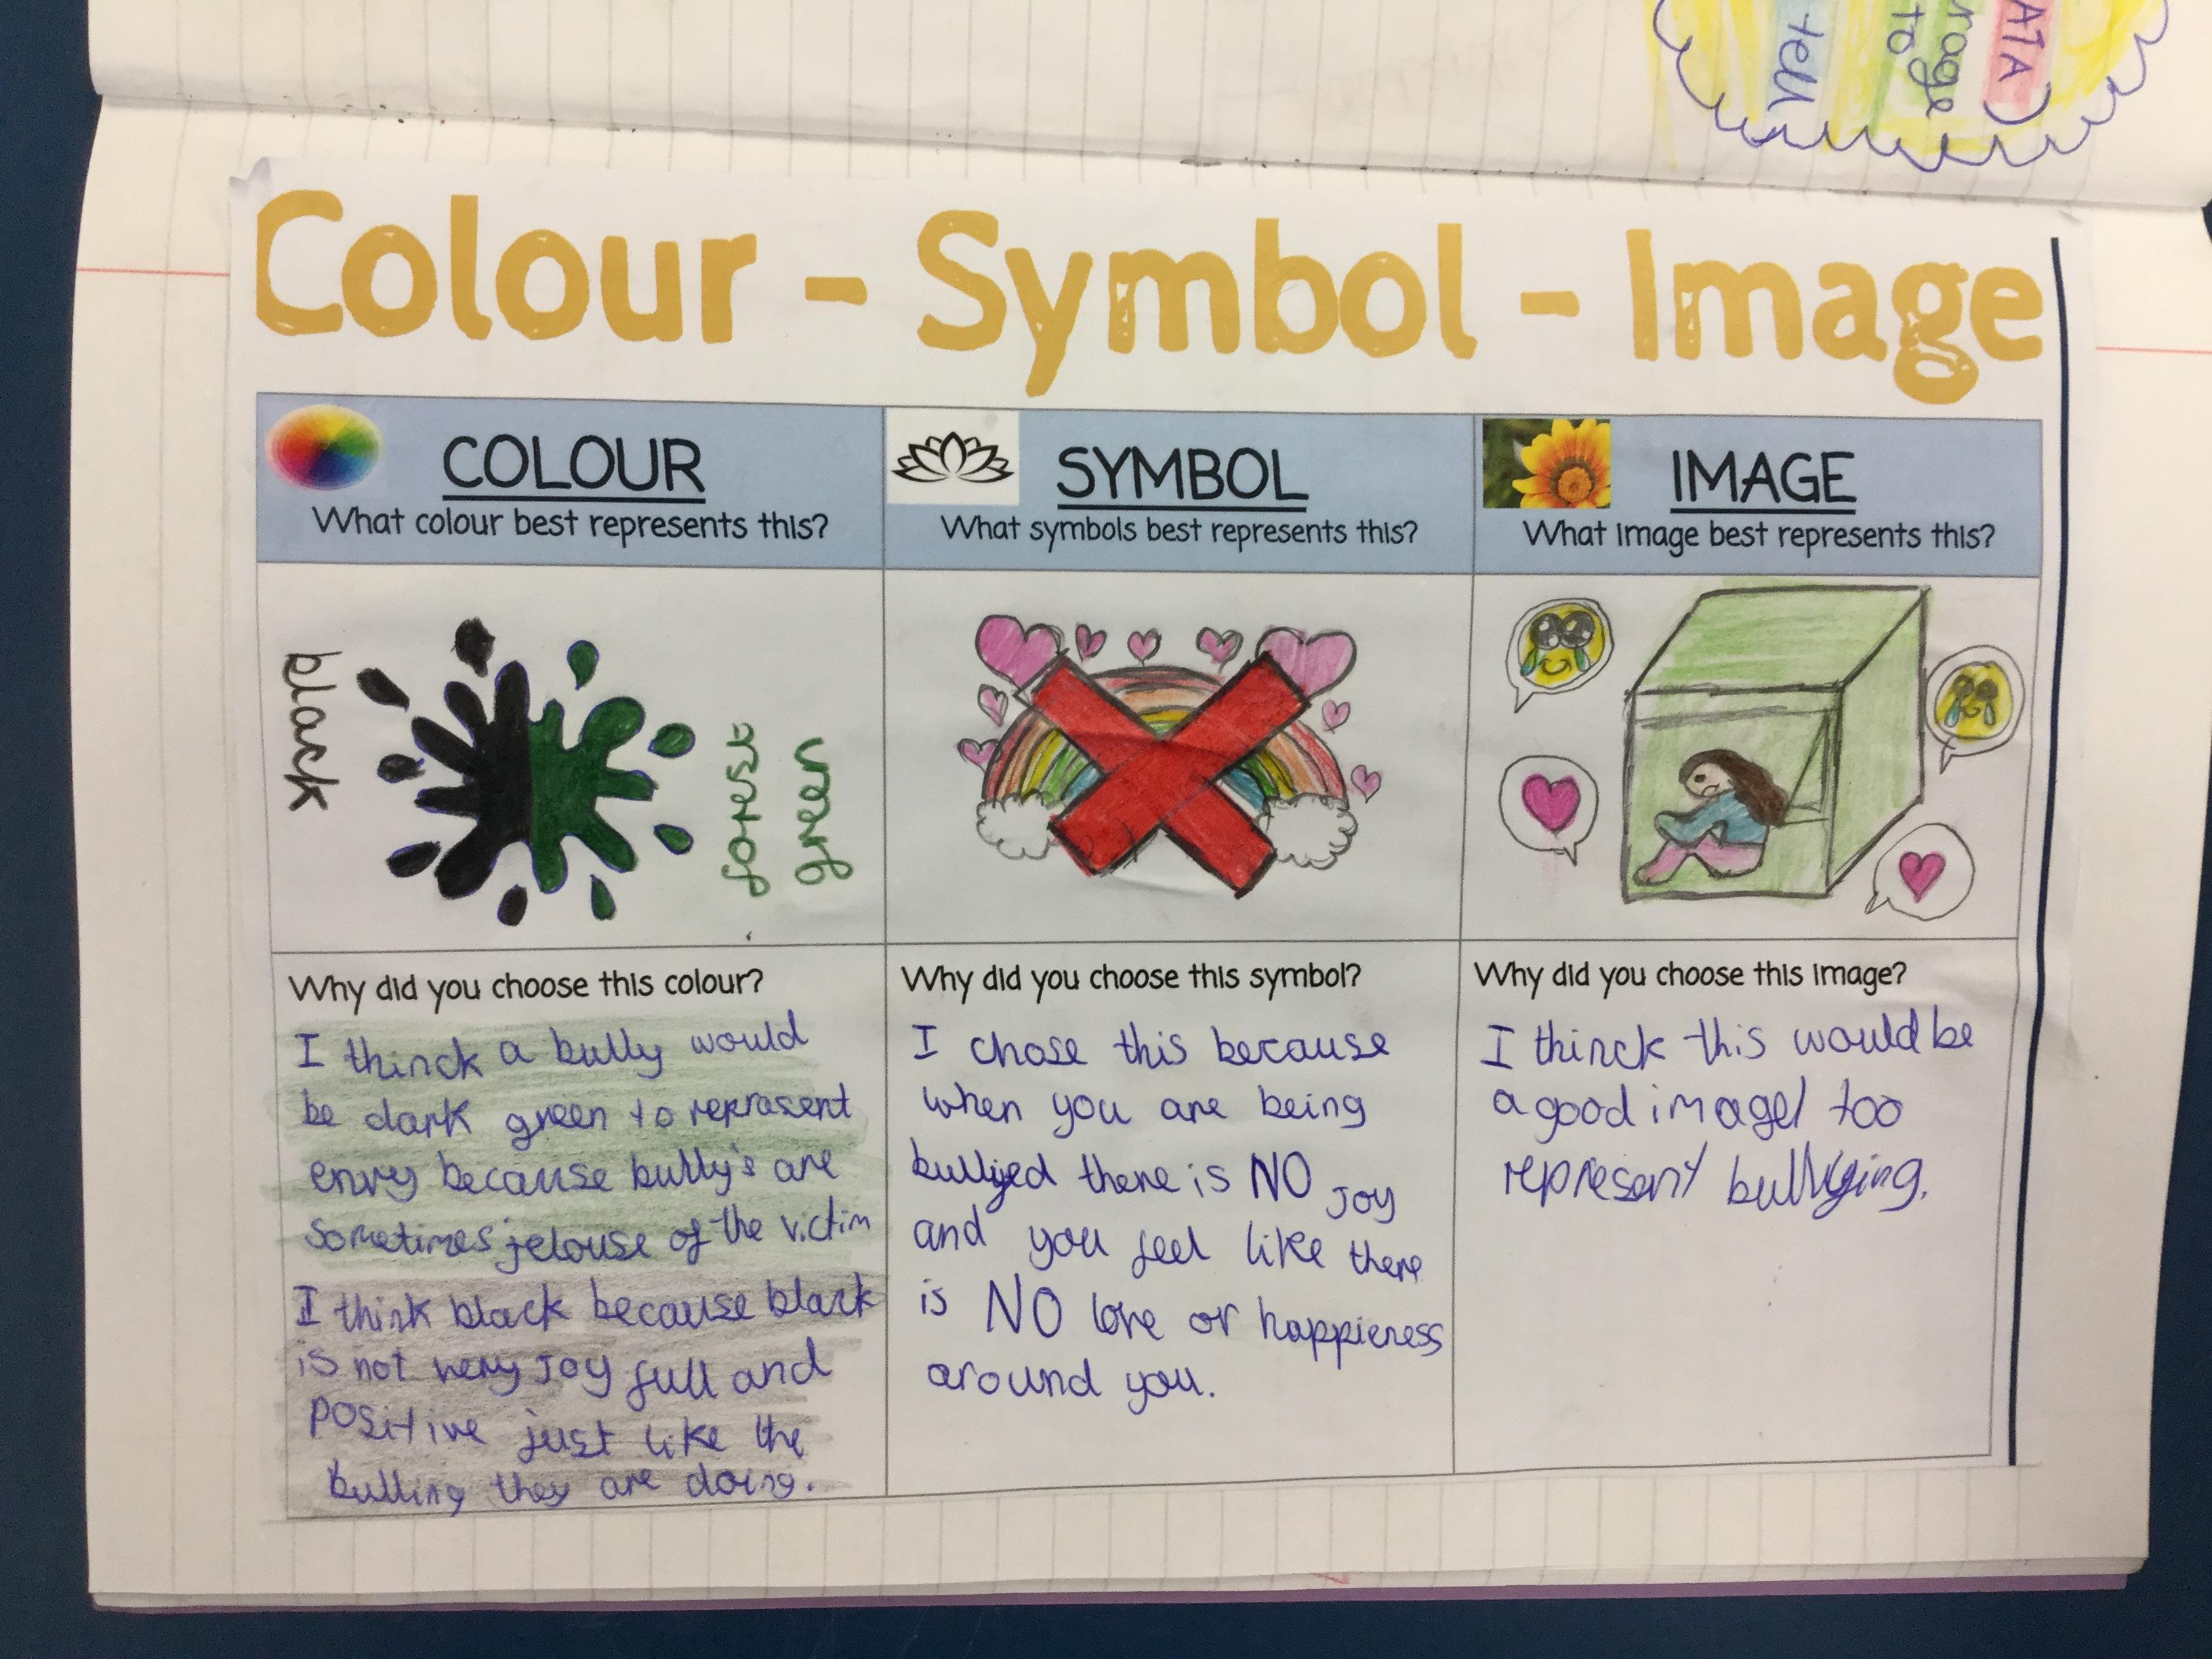 ATA)
urage
to
tell
Colour - Symbol - Image
COLOUR
What colour best represents this?
SYMBOL
What symbols best represents this?
IMAGE
What image best represents this?
black
forest
green
Why did you choose this colour?
I thinck a bully would
be dark green to reprasent
envy because bully's are
sometimes jelouse of the victim
I think black because black
is not very Joy full and
positive just like the
bulling they are doing.
Why did you choose this symbol?
I chose this because
when you are being
bullyed there is NO Joy
and you feel like there
is NO love or happieness
around you.
Why did you choose this image?
I thinck this would be
a good image too
represent bullying.